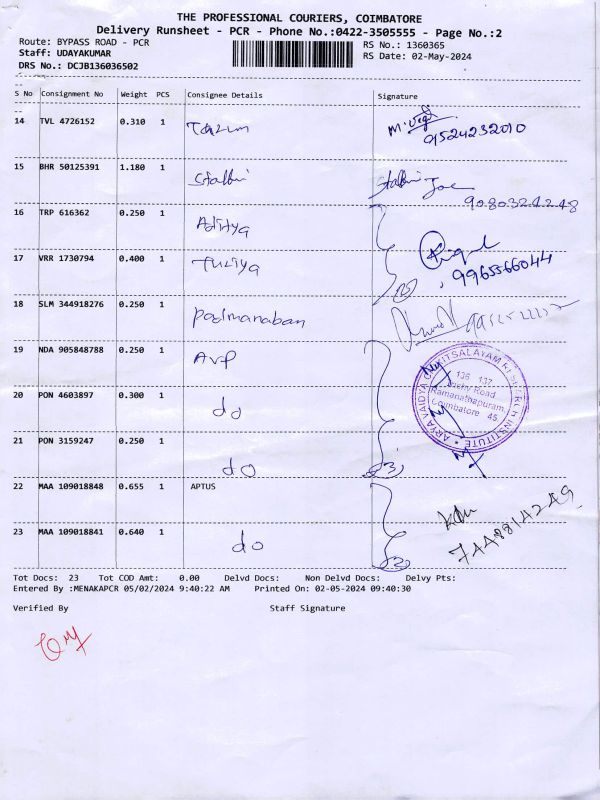 THE PROFESSIONAL COURIERS, COIMBATORE
Delivery Runsheet - PCR - Phone No.:0422-3505555 - Page No.:2
Route: BYPASS ROAD - PCR
RS No.: 1360365
Staff: UDAYAKUMAR
RS Date: 02-May-2024
DRS No.: DCJB136036502
S No Consignment No Weight PCS Consignee Details Signature
14 TVL 4726152 0.310 1
9524232010
15 BHR 50125391 1.180 1 Stalbin Stalbin Joe
9080324248
16 TRP 616362 0.250 1 Aditya
17 VRR 1730794 0.400 1
9965566044
18 SLM 344918276 0.250 1 Padmanaban
19 NDA 905848788 0.250 1 AVP
20 PON 4603897 0.300 1 do
21 PON 3159247 0.250 1 do
ARYA VAIDYA CHIKITSALAYAM RESEARCH INSTITUTE
136 137
Trichy Road
Ramanathapuram
Coimbatore 45
22 MAA 109018848 0.655 1 APTUS
23 MAA 109018841 0.640 1 do
Tot Docs: 23 Tot COD Amt: 0.00 Delvd Docs: Non Delvd Docs: Delvy Pts:
Entered By :MENAKAPCR 05/02/2024 9:40:22 AM Printed On: 02-05-2024 09:40:30
Verified By Staff Signature